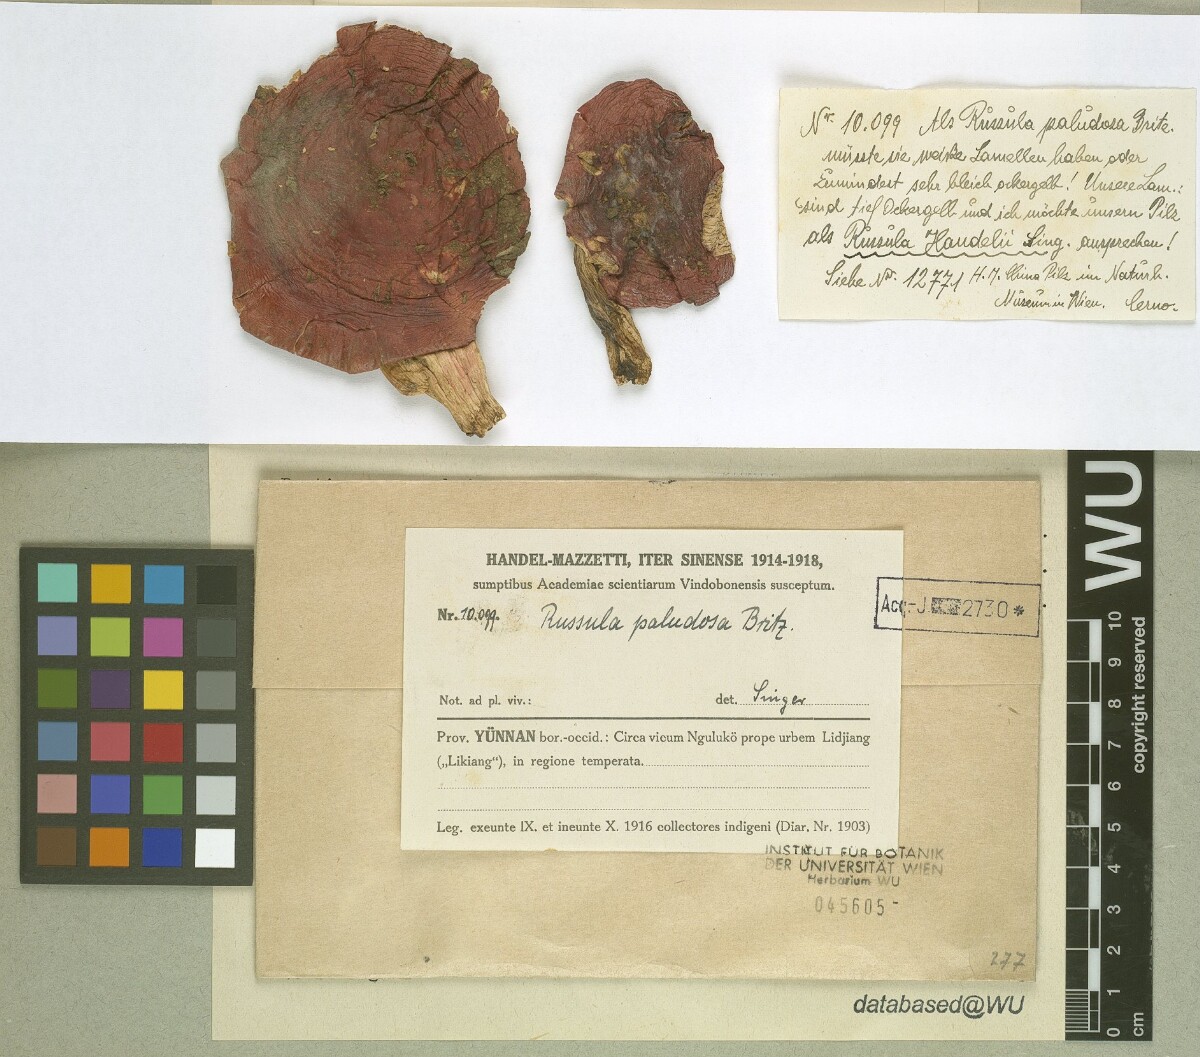 Nr. 10.099 Als Russula paludosa Britz.
müsste sie weiße Lamellen haben oder
zumindest sehr bleich ockergelb! Unsere Lam.:
sind tief Ockergelb und ich möchte unsern Pilz
als Russula Handelii Sing. ansprechen!
Siehe Nr. 12771 H. M. China Pilz im Naturh.
Museum in Wien.
HANDEL-MAZZETTI, ITER SINENSE 1914-1918,
sumptibus Academiae scientiarum Vindobonensis susceptum.
Nr. 10.099. Russula paludosa Britz.
Not. ad pl. viv.: det. Singer
Prov. YÜNNAN bor.-occid.: Circa vicum Ngulukö prope urbem Lidjiang
(„Likiang“), in regione temperata.
Leg. exeunte IX. et ineunte X. 1916 collectores indigeni (Diar. Nr. 1903)
Acq.-J 2730 *
INSTITUT FÜR BOTANIK
DER UNIVERSITÄT WIEN
Herbarium WU
045605
277
databased@WU
WU
copyright reserved
0 1 2 3 4 5 6 7 8 9 10
cm